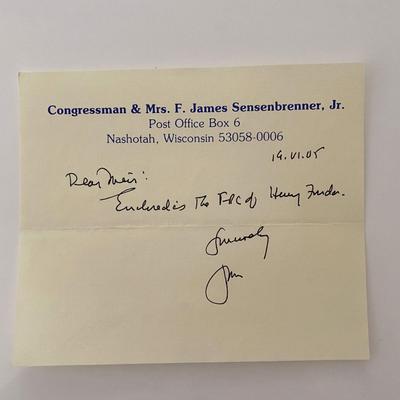 Congressman & Mrs. F. James Sensenbrenner, Jr.
Post Office Box 6
Nashotah, Wisconsin 53058-0006
19.VI.05
Dear Meir:
Enclosed is the FDC of Henry
Sincerely
Jim